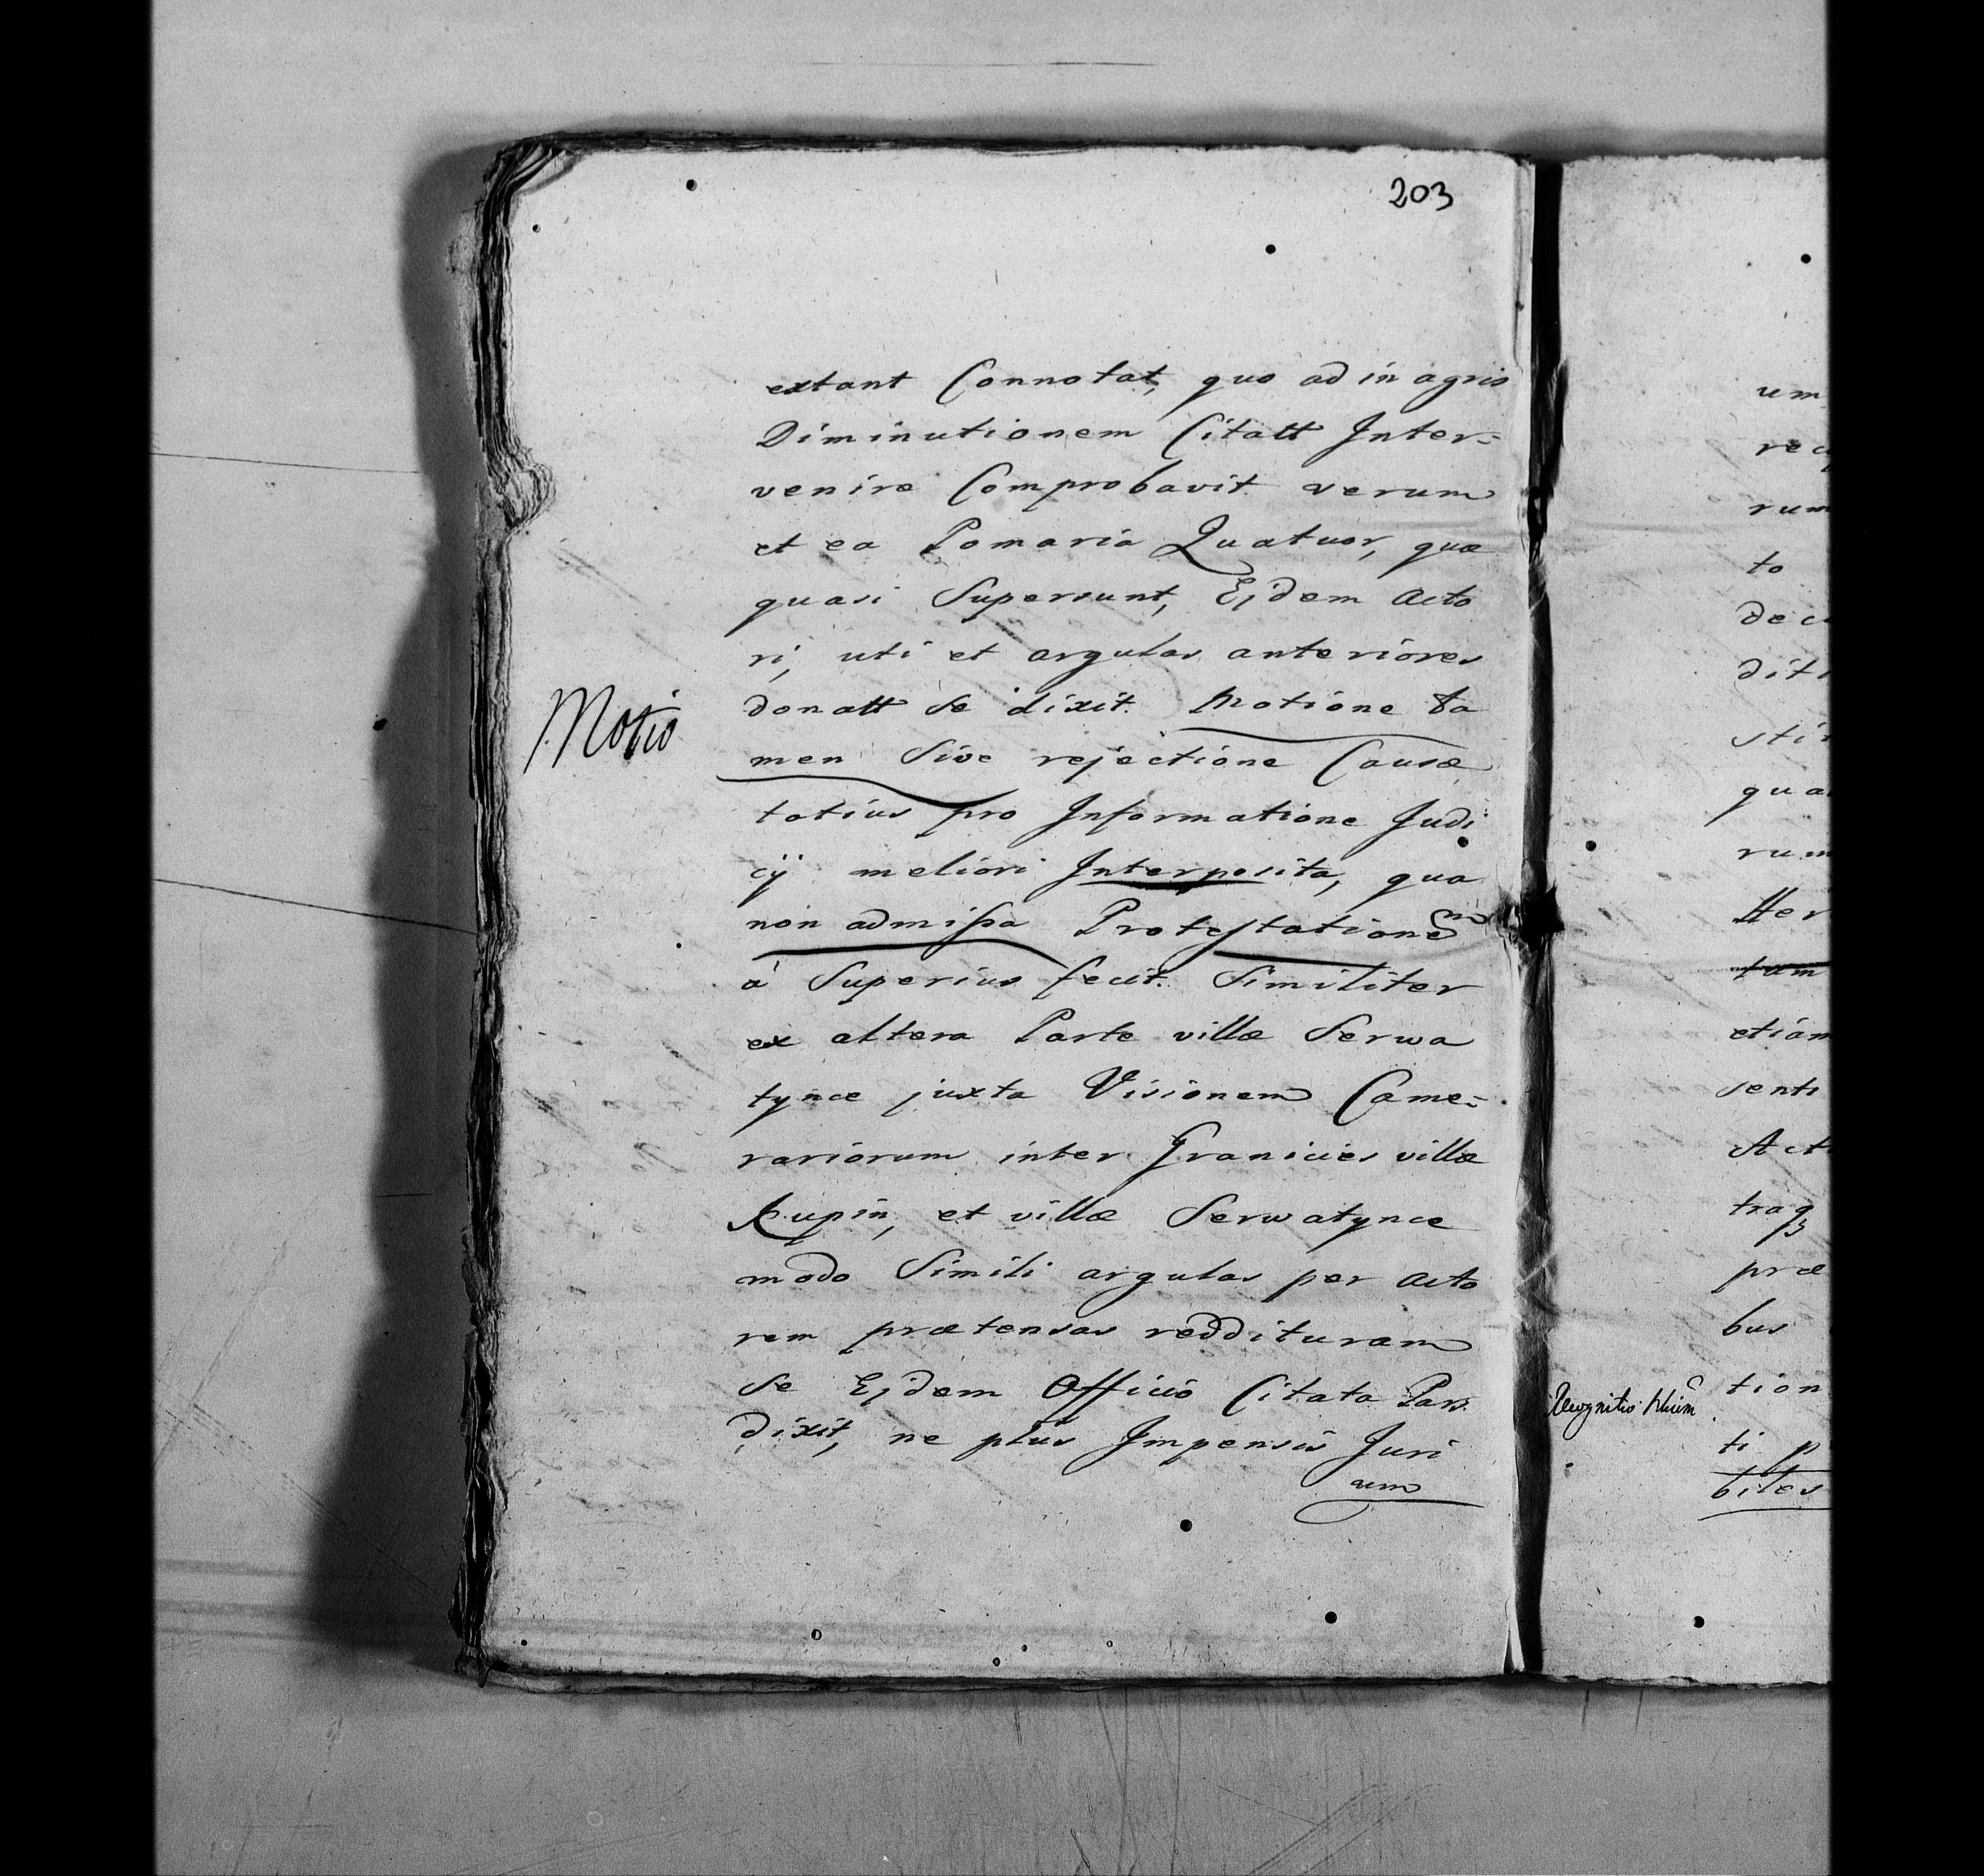 203
extant Connotat, quo ad in agris
Diminutionem Citatt Inter-
venire Comprobavit verum
et ea Pomaria Quatuor, quæ
quasi Supersunt, Ejdem Acto
ri, uti et argulas anteriores
Motio
donatt se dixit. Motione ta
men Sive rejectione Causæ
totius pro Informatione Judi
cÿ meliori Interposita, qua
non admissa Protestationem
à Superius fecit. Similiter
ex altera Parte villæ Serwa
tynce juxta Visionem Came-
rariorum inter Granicies villæ
Kupin, et villæ Serwatynce
modo Simili argulas per Acto
rem prætensas reddituram
se Ejdem Officio Citata Pars
dixit, ne plus Impensis Juri
um
um
rum
to
dec
diti
qua
rum
tter
tum
etiam
senti
Act
traq
præ
bus
Recognitio
tion
ti p
biles